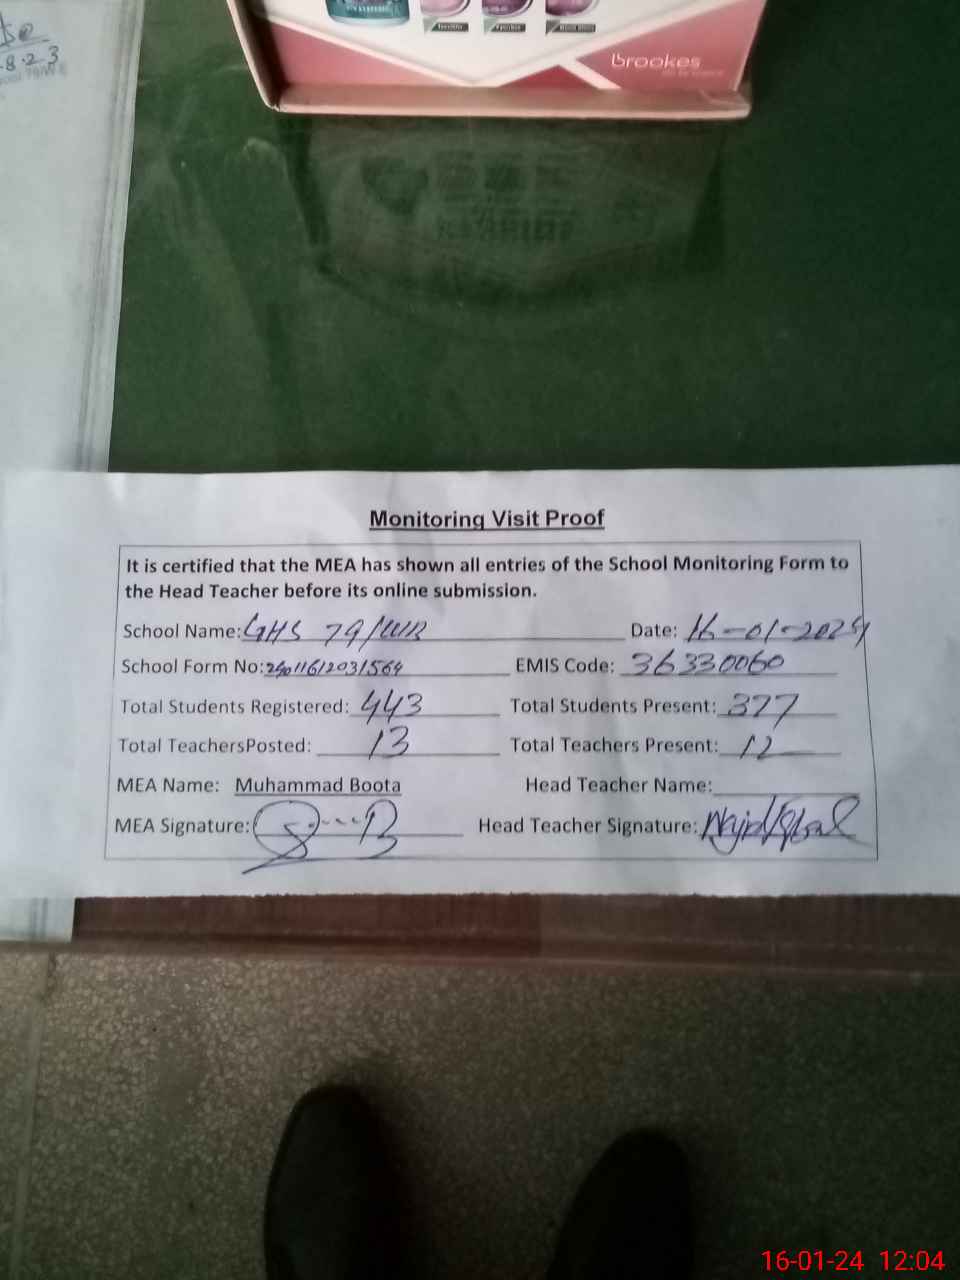 8.23
Brookes
Monitoring Visit Proof
It is certified that the MEA has shown all entries of the School Monitoring Form to
the Head Teacher before its online submission.
School Name: GHS 79/WB Date: 16-01-2024
School Form No: EMIS Code: 36330060
Total Students Registered: 443 Total Students Present: 377
Total TeachersPosted: 13 Total Teachers Present: 12
MEA Name: Muhammad Boota Head Teacher Name:
MEA Signature: Head Teacher Signature:
16-01-24 12:04